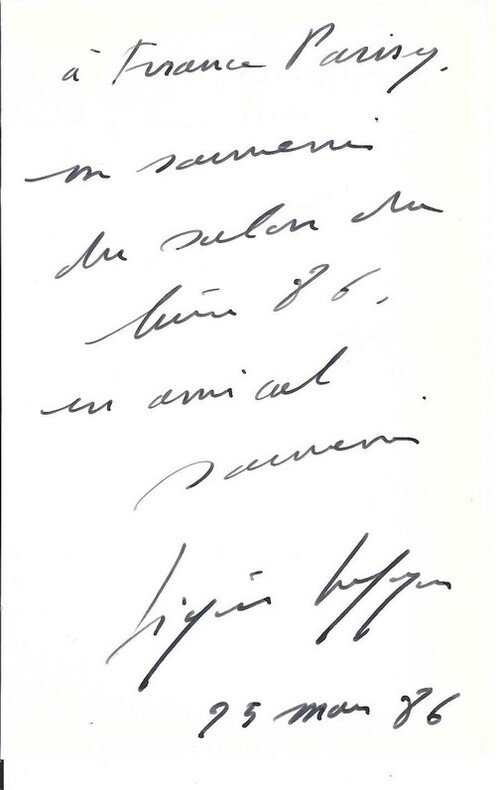 à France Parisy.
en souvenir
du salon du
livre 86.
en amical
souvenir
25 mars 86